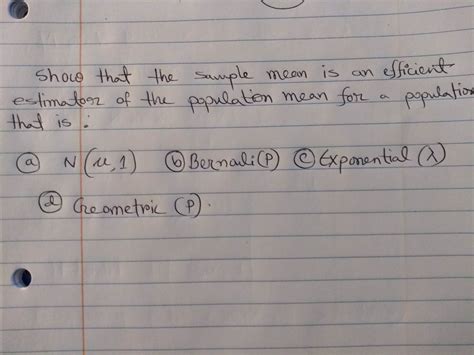 Show that the sample mean is an efficient
estimator of the population mean for a population
that is :
(a) N(μ,1) (b) Bernali(P) (c) Exponential (λ)
(d) Geometric (P).